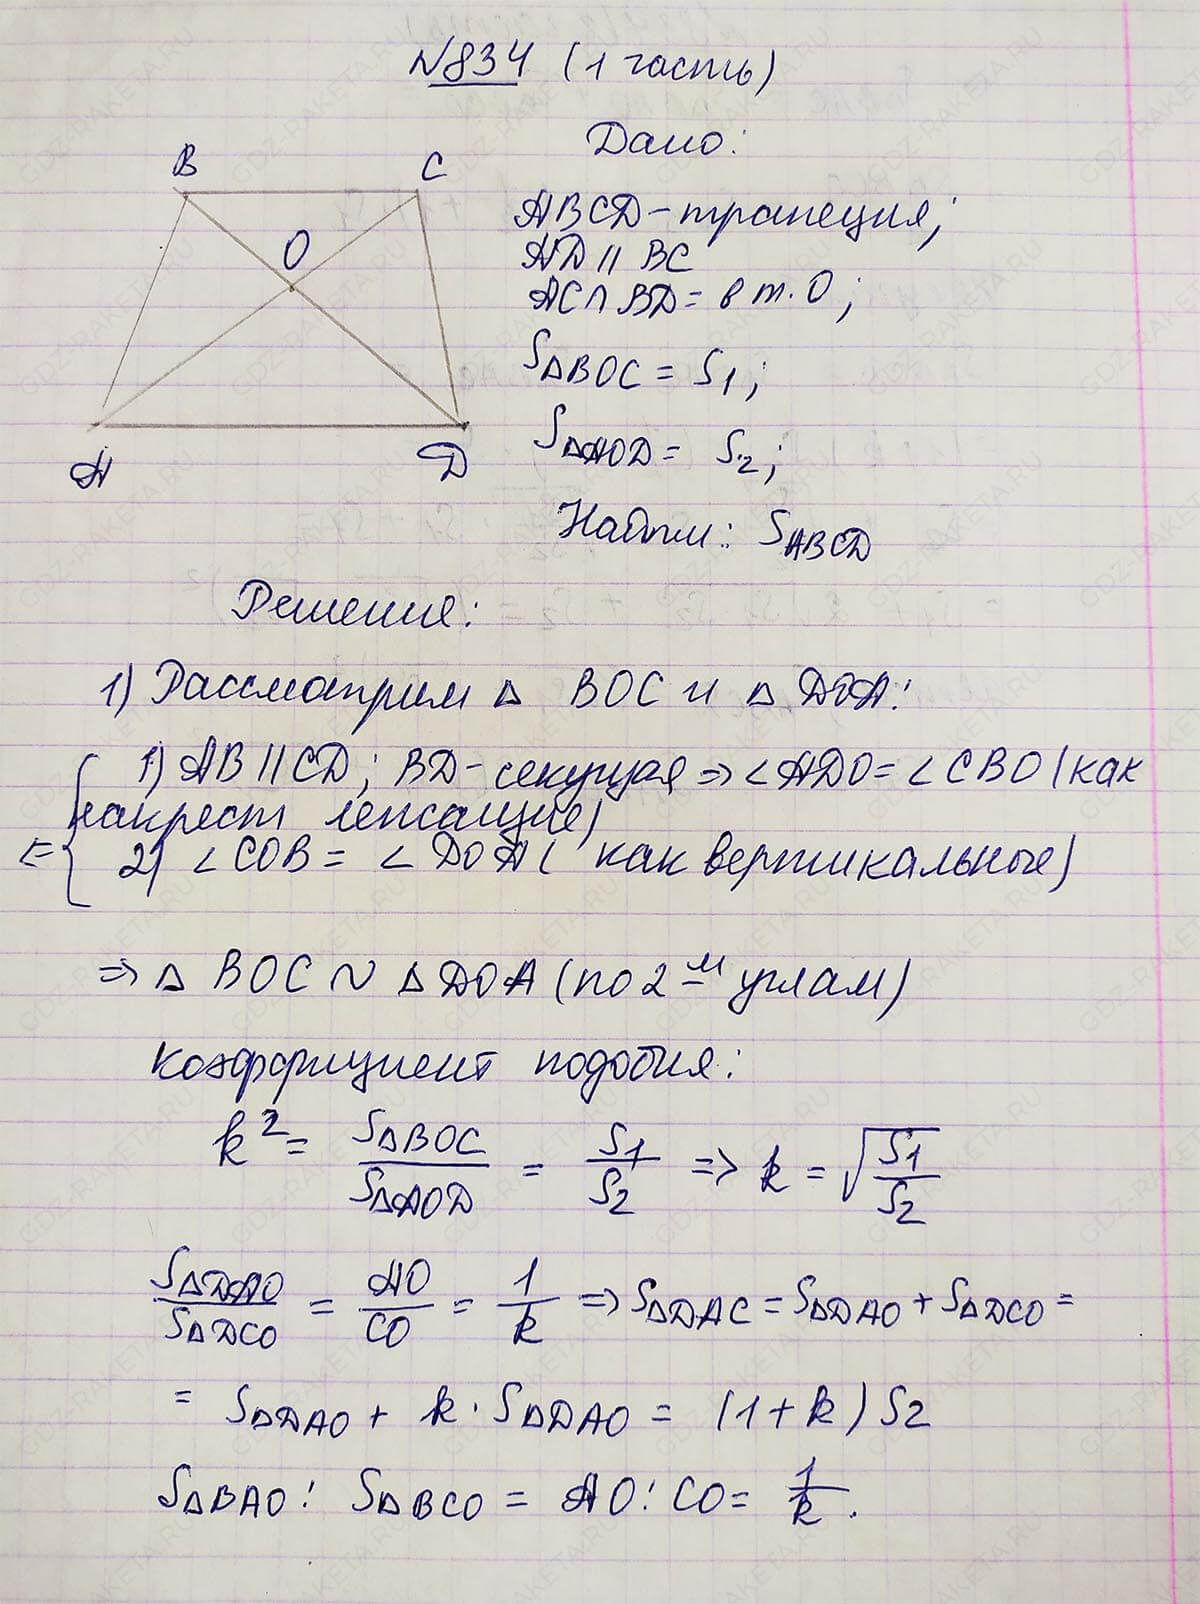 №834 (1 часть)
B
C
O
A
D
Дано:
ABCD - трапеция;
AD || BC
AC ∩ BD = в т. O;
S△BOC = S1;
S△AOD = S2;
Найти: SABCD
Решения:
1) Рассмотрим △ BOC и △ DOA:
1) AB || CD; BD - секущая => ∠ADO = ∠CBO (как
накрест лежащие)
<= 2) ∠COB = ∠DOA (как вертикальные)
=> △ BOC ~ △ DOA (по 2-м углам)
Коэффициент подобия:
k² = S△BOC / S△AOD = S1 / S2 => k = √(S1 / S2)
S△DAO / S△DCO = AO / CO = 1 / k => S△DAC = S△DAO + S△DCO =
= S△DAO + k · S△DAO = (1 + k) S2
S△BAO : S△BCO = AO : CO = 1 / k.